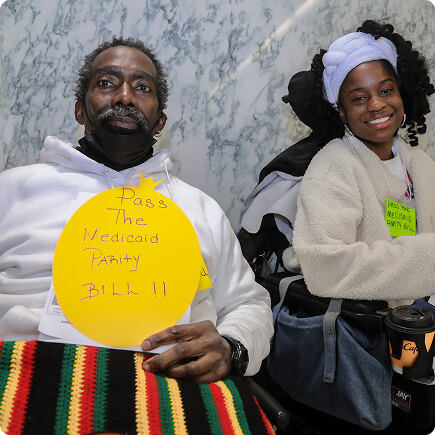 Pass
The
Medicaid
PARITY
BILL !!
PASS THE
MEDICAID
PARITY
BILL
Cafe
JAY